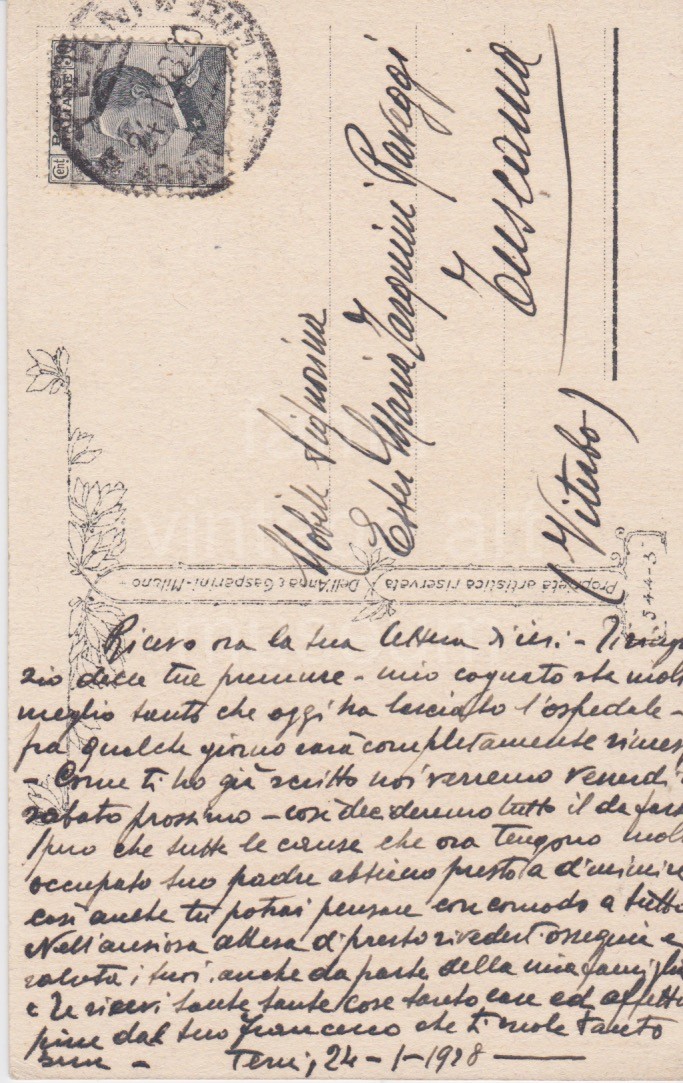 POSTE ITALIANE
Cent
Nobile Signorina
Ester Maria Tarquini
Tuscania
(Viterbo)
Proprietà artistica riservata
Dell'Anna e Gasperini - Milano
544-3
Ricevo ora la tua lettera di ieri - Ti ringr
zio delle tue premure - mio cognato sta molt
meglio tanto che oggi ha lasciato l'ospedale -
fra qualche giorno sarà completamente rimes
- Come ti ho già scritto noi verremo venerdì
sabato prossimo - così decideremo tutto il da fars
Spero che tutte le cause che ora tengono molt
occupato tuo padre abbiano presto a diminuire
così anche tu potrai pensare con comodo a tutto
Nell'ansiosa attesa di presto rivederti ossequia e
saluta i tuoi anche da parte della mia famiglia
e te ricevi tante tante cose tanto care ed affettu
dal tuo Francesco che ti vuole tanto
Terni, 24-1-1928